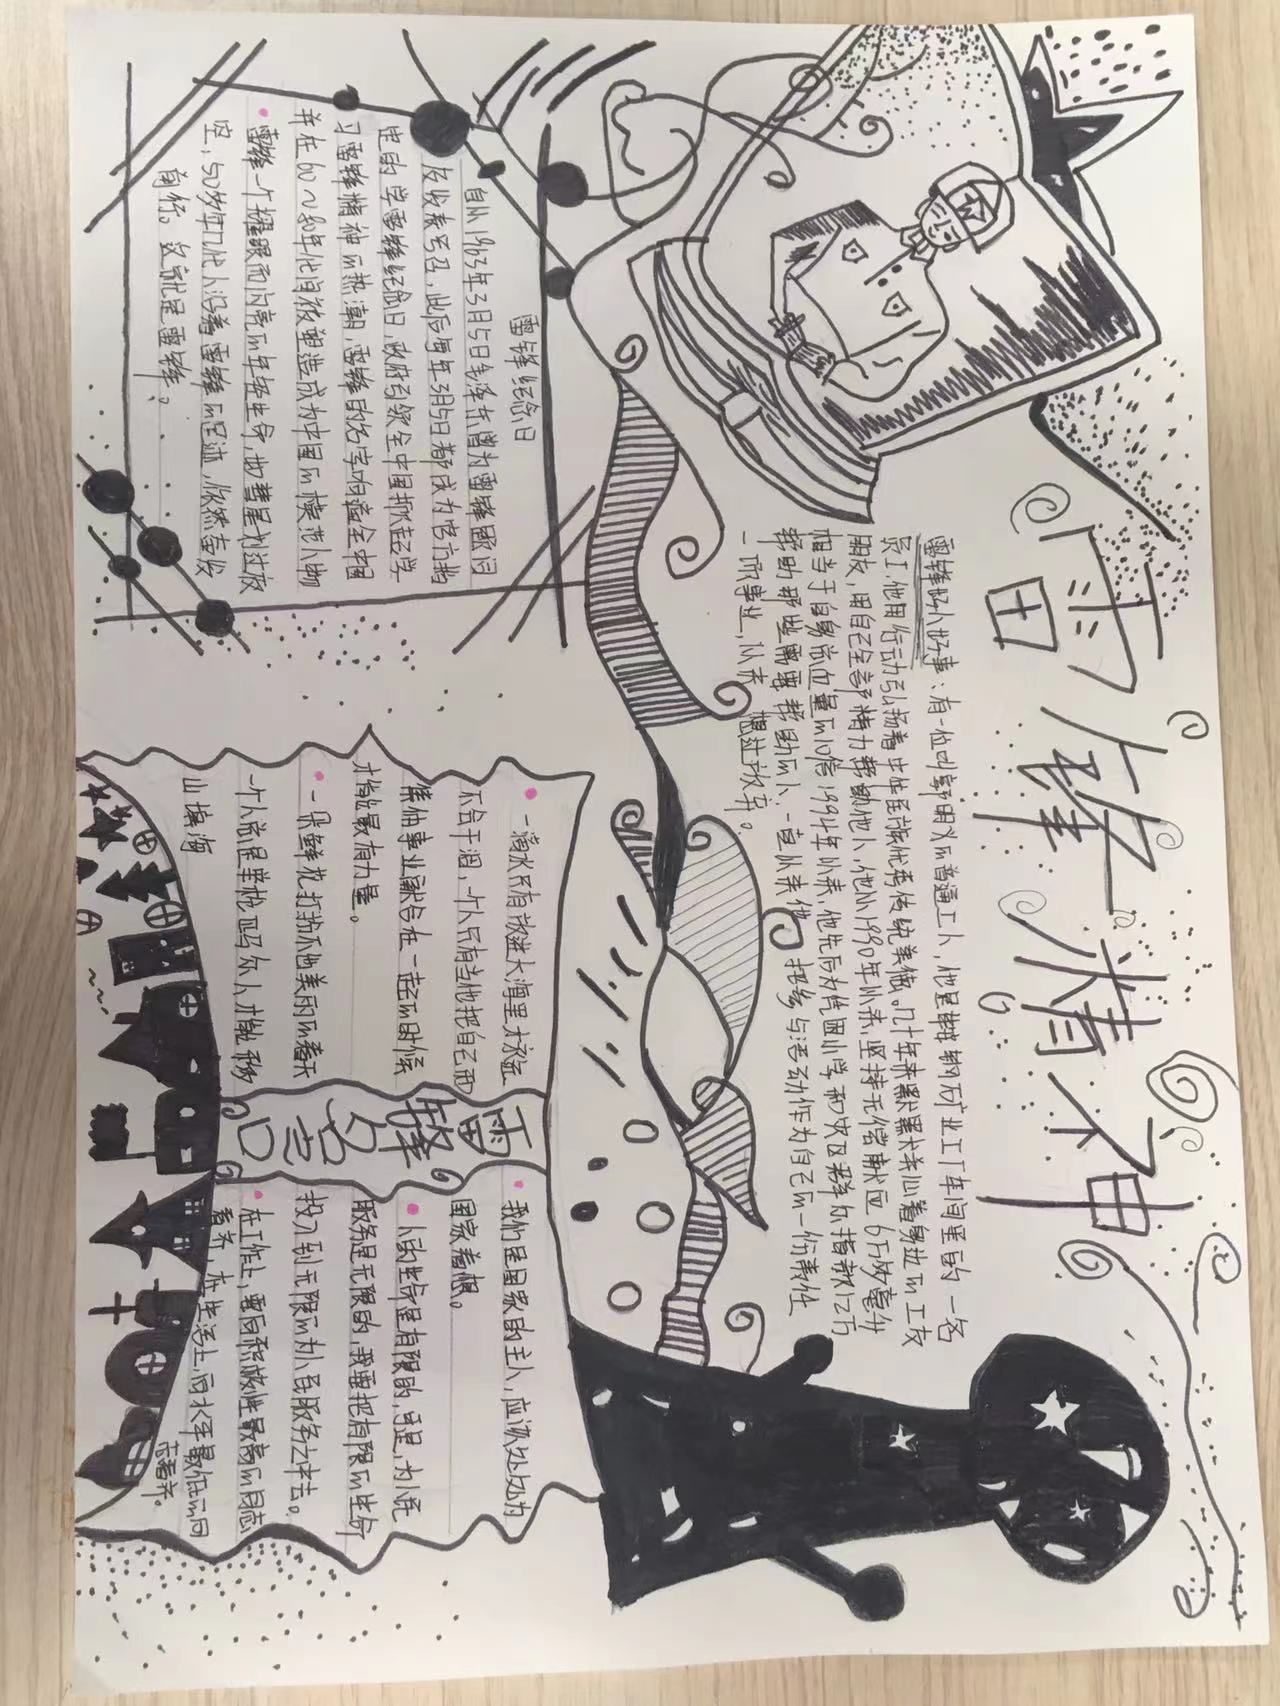 雷锋精神
雷锋好人好事：有一位叫郭明义的普通工人，他是鞍钢矿业工厂车间里的一名
员工，他用行动弘扬着中华民族优秀传统美德。几十年来默默关心着身边的工友
朋友，用自己全部精力帮助他人，他从1990年以来，坚持无偿献血6万多毫升
相当于自身总血量的10倍，1994年以来，他先后为优困小学和灾区群众捐款12万
帮助那些需要帮助的人，一直以来他把参与活动作为自己的一份责任
一项事业，从未想过放弃。
雷锋纪念日
自从1963年3月5日毛泽东曾为雷锋题词
及发表号召，此后每年3月5日都成为官方指
定的学雷锋纪念日，政府引领全中国掀起学
习雷锋精神的热潮，雷锋的名字响遍全中国
并在60～80年代间被塑造成为中国的模范人物
雷锋一个耀眼而闪亮的年轻生命，如彗星划过夜
空，50多年几代人沿着雷锋的足迹，依然奋发
前行。这就是雷锋。
一滴水只有放进大海里才永远
不会干涸，一个人只有当他把自己和
集体事业融合在一起的时候
才能最有力量。
一朵鲜花打扮不他美丽的春天
一个人总是单枪匹马众人才能移
山填海
雷锋名言
我们是国家的主人，应该处处为
国家着想。
人的生命是有限的，可是，为人民
服务是无限的，我要把有限的生命
投入到无限的为人民服务之中去。
在工作上，要向积极性最高的同志
看齐，在生活上，向水平最低的同
志看齐。